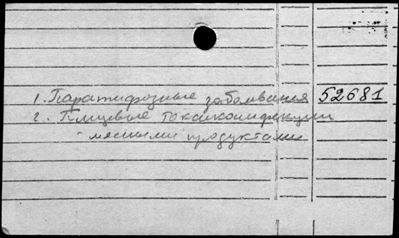 1. Паратифозные заболевания 52681
2. Пищевые токсикоинфекции
мясными продуктами